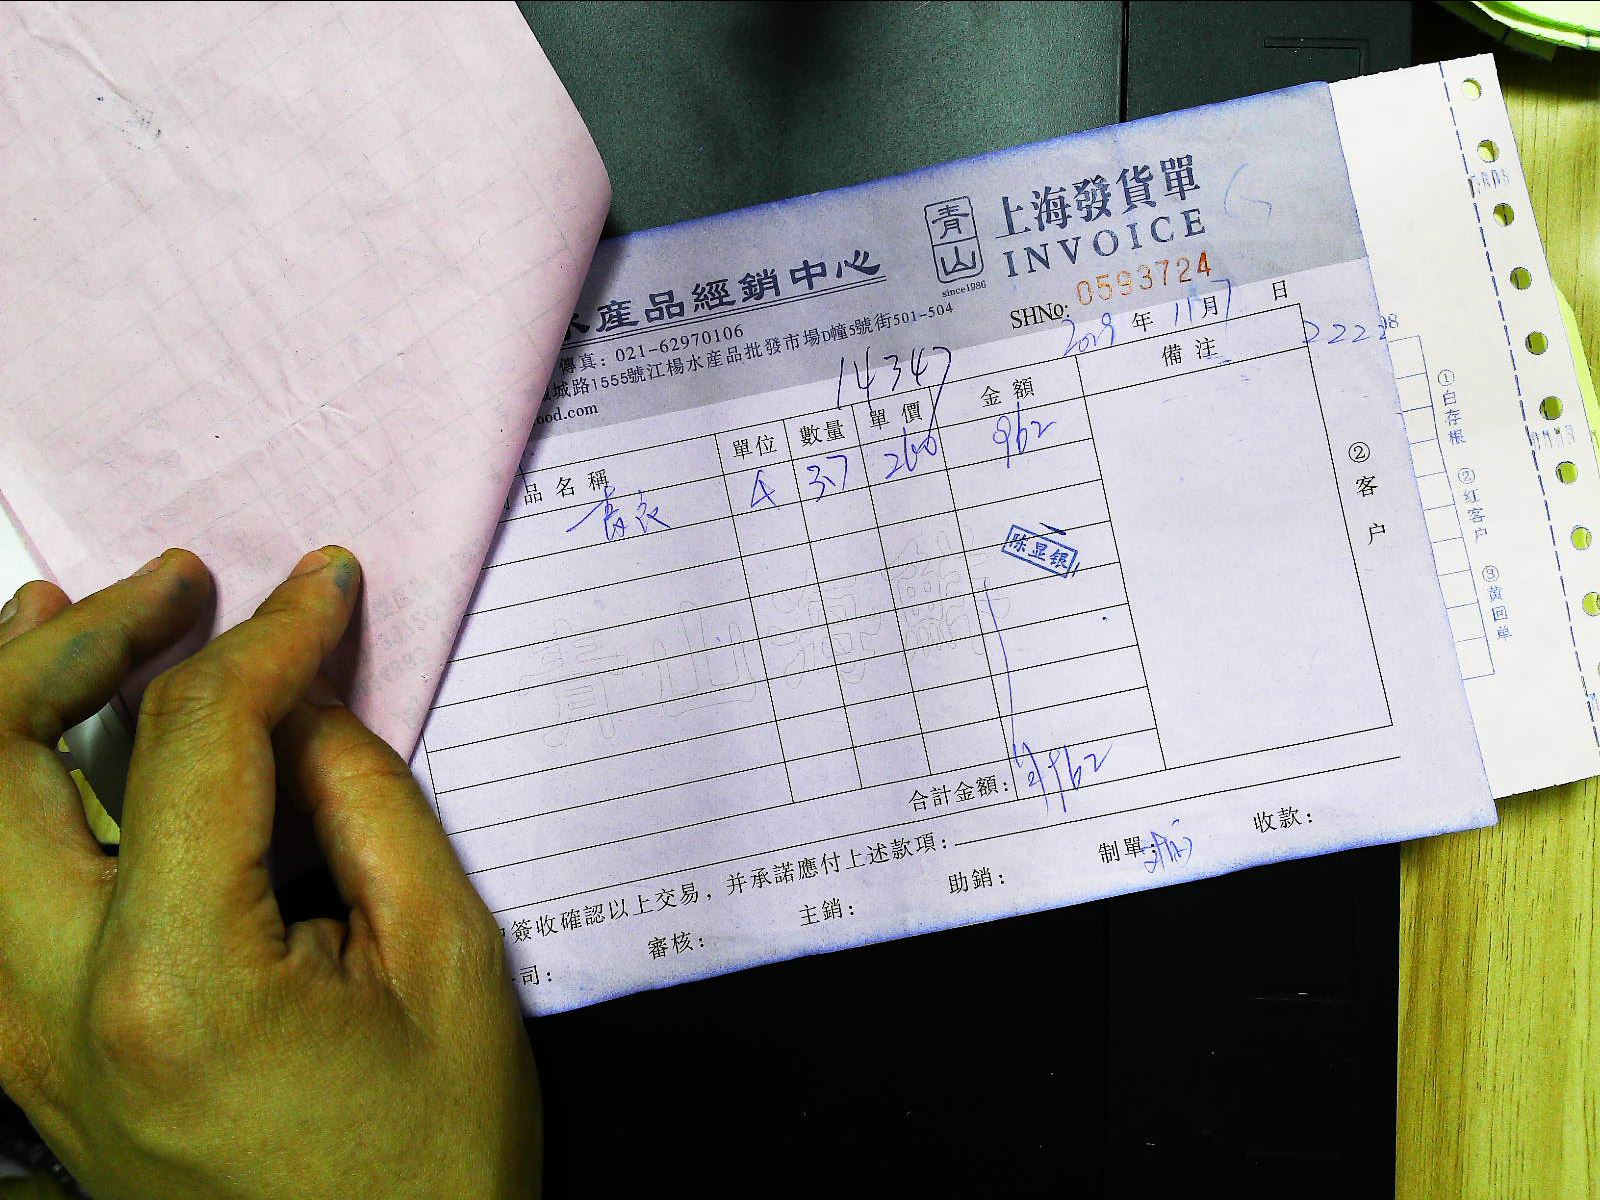 上海發貨單
INVOICE
青山
since1986
水產品經銷中心
SHNo: 0593724
傳真: 021-62970106
城路1555號江楊水產品批發市場D幢5號街501-504
ood.com
2019 年 11 月 7 日
14347
2222
品名稱 單位 數量 單價 金額 備注
3.7 260 962
陈显银
青山海鮮
合計金額: 962
簽收確認以上交易，并承諾應付上述款項:
司: 審核: 主銷: 助銷: 制單: 收款:
②客户
①白存根 ②红客户 ③黄回单